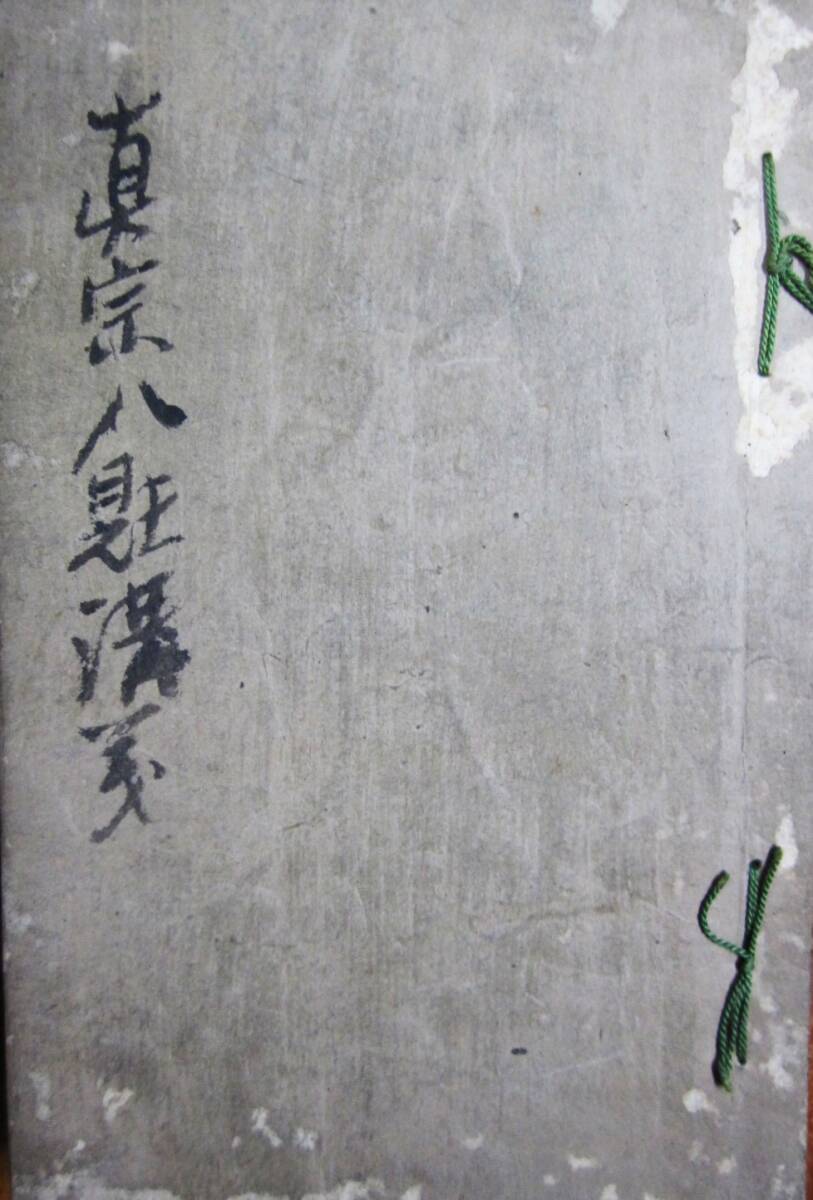 真宗八講義